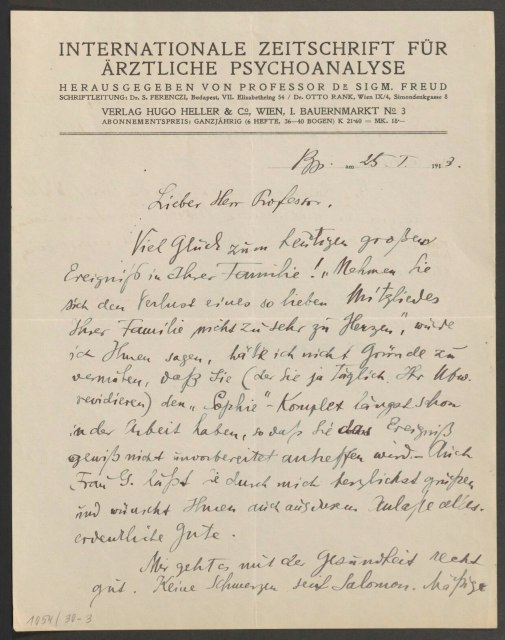 INTERNATIONALE ZEITSCHRIFT FÜR
ÄRZTLICHE PSYCHOANALYSE
HERAUSGEGEBEN VON PROFESSOR DR SIGM. FREUD
SCHRIFTLEITUNG: Dr. S. FERENCZI, Budapest, VII. Elisabethring 54 / Dr. OTTO RANK, Wien IX/4, Simondenkgasse 8
VERLAG HUGO HELLER & Co, WIEN, I. BAUERNMARKT No 3
ABONNEMENTSPREIS: GANZJÄHRIG (6 HEFTE, 36—40 BOGEN) K 21·60 = MK. 18·—
Bp. am 25. I. 1913.
Lieber Herr Professor,
Viel Glück zum heutigen grossen
Ereigniß in Ihrer Familie! „Nehmen Sie
sich den Verlust eines so lieben Mitgliedes
Ihrer Familie nicht zu sehr zu Herzen", würde
ich Ihnen sagen, hätte ich nicht Gründe zu
vermuten, daß Sie (der Sie ja täglich Ihr Ubw.
revidieren) den „Sophie"-Komplex längst schon
in der Arbeit haben, so daß Sie das Ereigniß
gewiß nicht unvorbereitet antreffen wird. – Auch
Frau G. läßt Sie durch mich herzlichst grüßen
und wünscht Ihnen auch aus diesem Anlaße alles
erdentliche Gute.
Mir geht es mit der Gesundheit recht
gut. Keine Schmerzen seit Salomon. Mäßige
1054/38-3